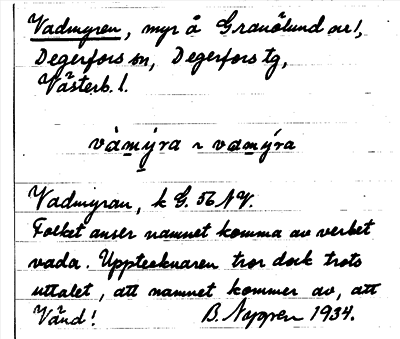 Vadmyren, myr å Granölund nr 1,
Degerfors sn, Degerfors tg,
Västerb. l.
vàmýra ~ vamýra
Vadmyran, k G. 56 NV.
Folket anser namnet komma av verbet
vada. Upptecknaren tror dock trots
uttalet, att namnet kommer av, att
Vänd! B. Nygren 1934.